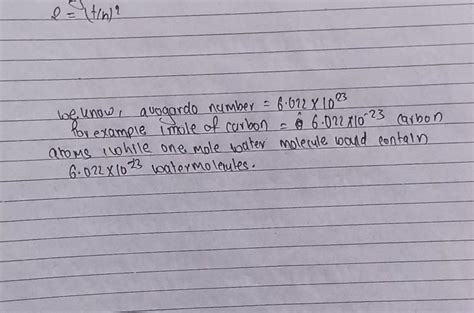 e = (t/n)²
we know, avogardo number = 6.022 x 10²³
for example 1mole of carbon = 6.022 x 10⁻²³ carbon
atoms while one mole water molecule would contain
6.022 x 10⁻²³ water molecules.